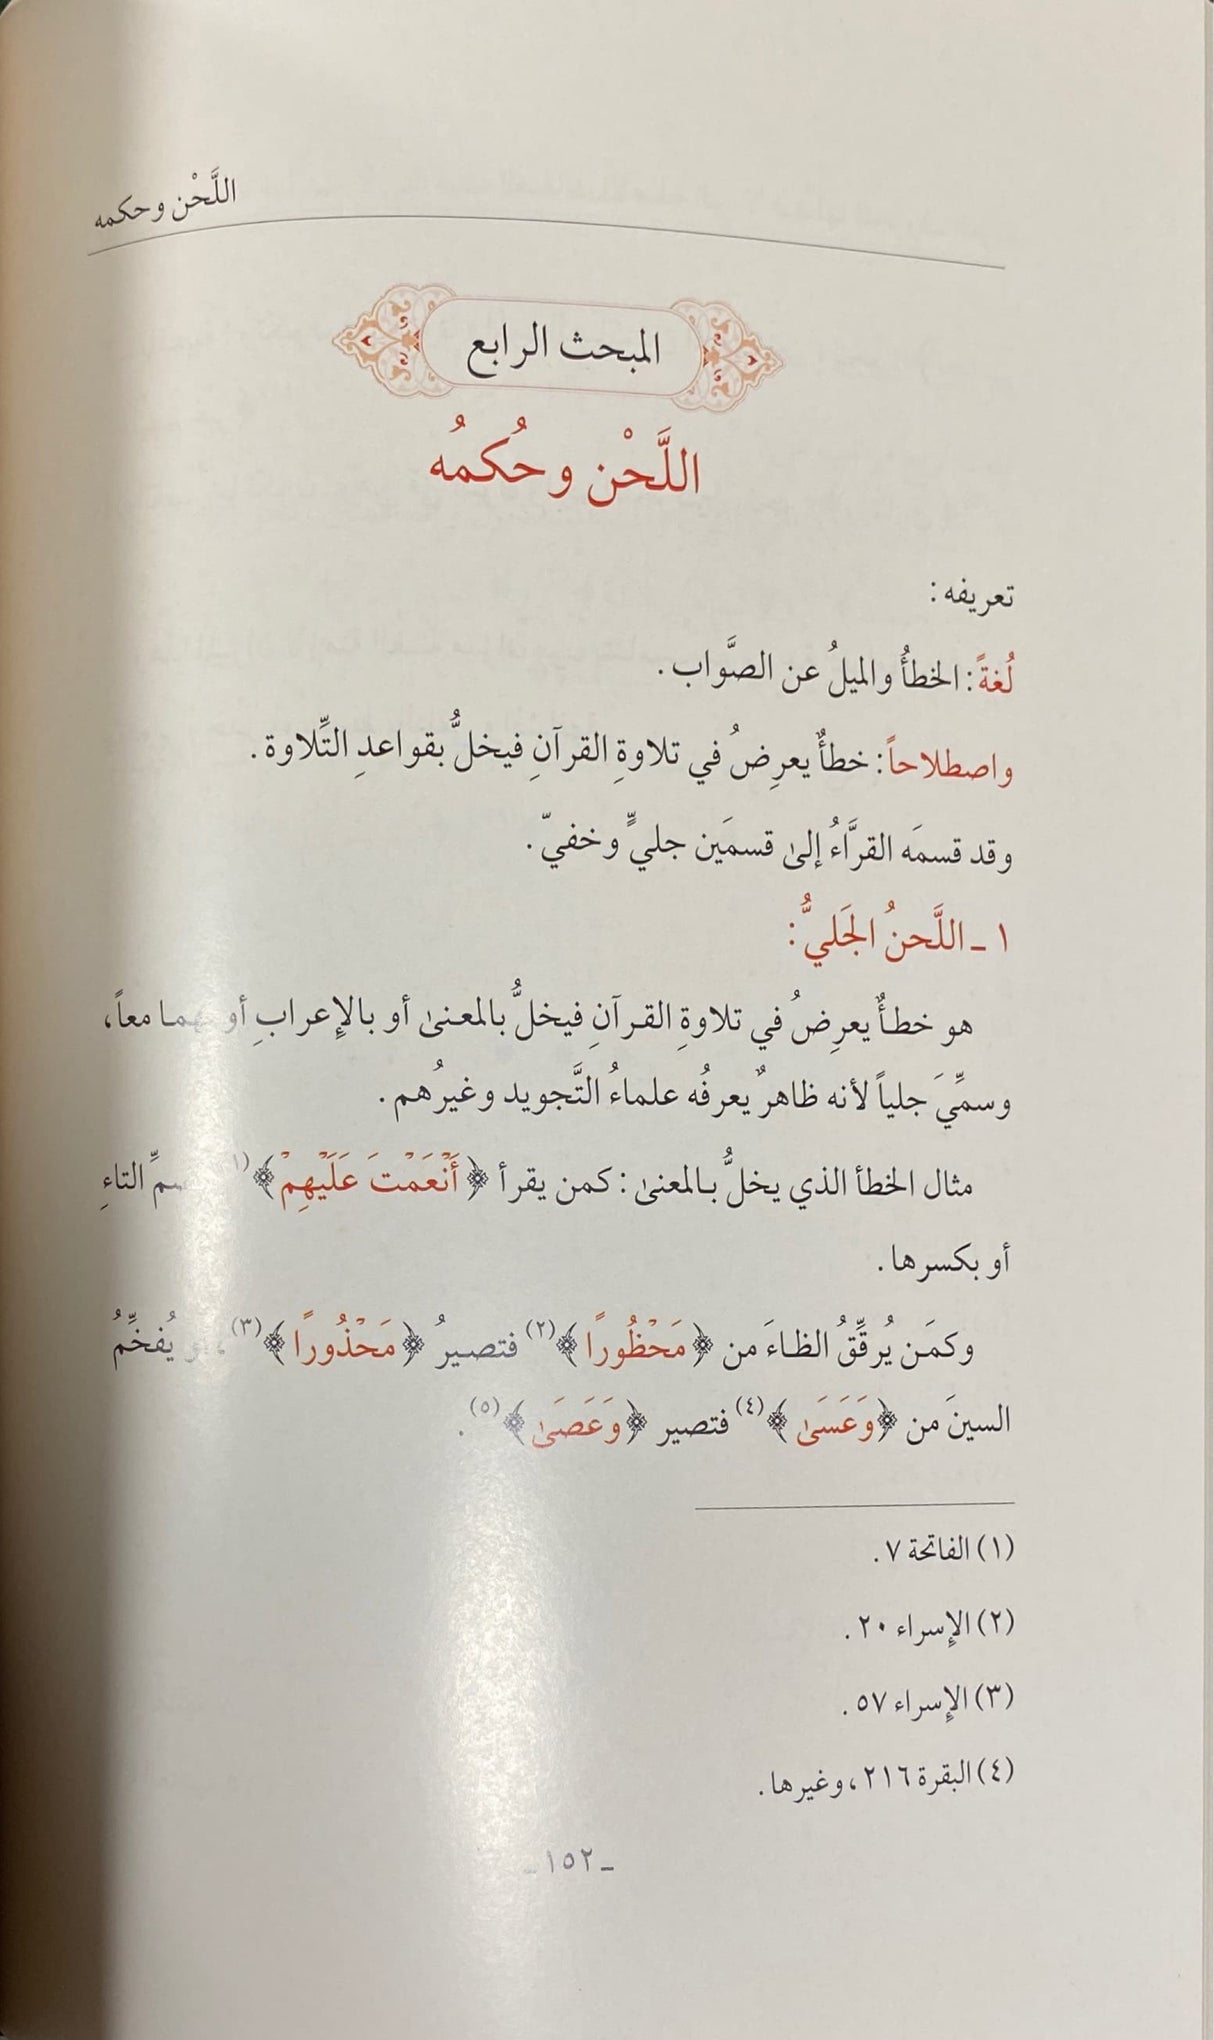 اللَّحْن وحكمه
المبحث الرابع
اللَّحْن وحُكمُه
تعريفه :
لُغةً: الخطأُ والميلُ عن الصَّواب .
واصطلاحاً: خطأٌ يعرِضُ في تلاوةِ القرآنِ فيخلُّ بقواعدِ التِّلاوة .
وقد قسمَه القرَّاءُ إلىٰ قسمَين جليٍّ وخفيّ .
١ ـ اللَّحنُ الجَليُّ :
هو خطأٌ يعرِضُ في تلاوةِ القرآنِ فيخلُّ بالمعنىٰ أو بالإعرابِ أو معاً،
وسمِّيَ جلياً لأنه ظاهرٌ يعرفُه علماءُ التَّجويد وغيرُهم .
مثال الخطأ الذي يخلُّ بالمعنىٰ : كمن يقرأ ﴿أَنْعَمْتَ عَلَيْهِمْ﴾(١) التاءِ
أو بكسرها .
وكمَن يُرقِّقُ الظاءَ من ﴿مَحْظُورًا﴾(٢) فتصيرُ ﴿مَحْذُورًا﴾(٣) يُفخِّمُ
السينَ من ﴿وَعَسَىٰ﴾(٤) فتصير ﴿وَعَصَىٰ﴾(٥) .
(١) الفاتحة ٧ .
(٢) الإسراء ٢٠ .
(٣) الإسراء ٥٧ .
(٤) البقرة ٢١٦، وغيرها .
ـ ١٥٢ ـ